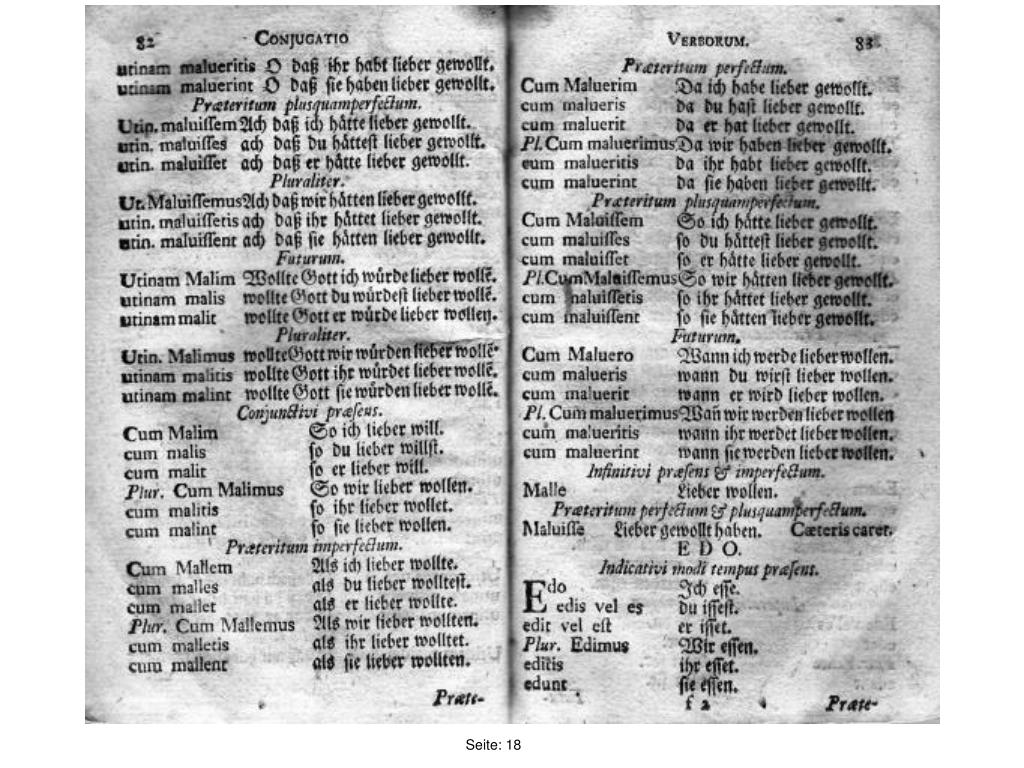 82 CONJUGATIO
utinam malueritis O daß ihr habt lieber gewollt.
utinam maluerint O daß sie haben lieber gewollt.
Præteritum plusquamperfectum.
Utin. maluissem Ach daß ich håtte lieber gewollt.
utin. maluisses ach daß du håttest lieber gewollt.
utin. maluisset ach daß er håtte lieber gewollt.
Pluraliter.
Ut. Maluissemus Ach daß wir håtten lieber gewollt.
utin. maluissetis ach daß ihr håttet lieber gewollt.
utin. maluissent ach daß sie håtten lieber gewollt.
Futurum.
Utinam Malim Wollte Gott ich wůrde lieber wollẽ.
utinam malis wollte Gott du wůrdest lieber wollẽ.
utinam malit wollte Gott er wůrde lieber wollen.
Pluraliter.
Utin. Malimus wollte Gott wir wůrden lieber wollẽ.
utinam malitis wollte Gott ihr wůrdet lieber wollẽ.
utinam malint wollte Gott sie wůrden lieber wollẽ.
Conjunctivi præsens.
Cum Malim So ich lieber will.
cum malis so du lieber willst.
cum malit so er lieber will.
Plur. Cum Malimus So wir lieber wollen.
cum malitis so ihr lieber wollet.
cum malint so sie lieber wollen.
Præteritum imperfectum.
Cum Mallem Als ich lieber wollte.
cum malles als du lieber wolltest.
cum mallet als er lieber wollte.
Plur. Cum Mallemus Als wir lieber wollten.
cum malletis als ihr lieber wolltet.
cum mallent als sie lieber wollten.
Præte-
VERBORUM. 83
Præteritum perfectum.
Cum Maluerim Da ich habe lieber gewollt.
cum malueris da du hast lieber gewollt.
cum maluerit da er hat lieber gewollt.
Pl. Cum maluerimus Da wir haben lieber gewollt.
cum malueritis da ihr habt lieber gewollt.
cum maluerint da sie haben lieber gewollt.
Præteritum plusquamperfectum.
Cum Maluissem So ich håtte lieber gewollt.
cum maluisses so du håttest lieber gewollt.
cum maluisset so er håtte lieber gewollt.
Pl. Cum Maluissemus So wir håtten lieber gewollt.
cum maluissetis so ihr håttet lieber gewollt.
cum maluissent so sie håtten lieber gewollt.
Futurum.
Cum Maluero Wann ich werde lieber wollen.
cum malueris wann du wirst lieber wollen.
cum maluerit wann er wird lieber wollen.
Pl. Cum maluerimus Wañ wir werden lieber wollen
cum malueritis wann ihr werdet lieber wollen.
cum maluerint wann sie werden lieber wollen.
Infinitivi præsens & imperfectum.
Malle Lieber wollen.
Præteritum perfectum & plusquamperfectum.
Maluisse Lieber gewollt haben. Cæteris caret.
E D O.
Indicativi modi tempus præsens.
Edo Ich esse.
edis vel es du issest.
edit vel est er isset.
Plur. Edimus Wir essen.
editis ihr esset.
edunt sie essen.
f 2 Præte-
Seite: 18